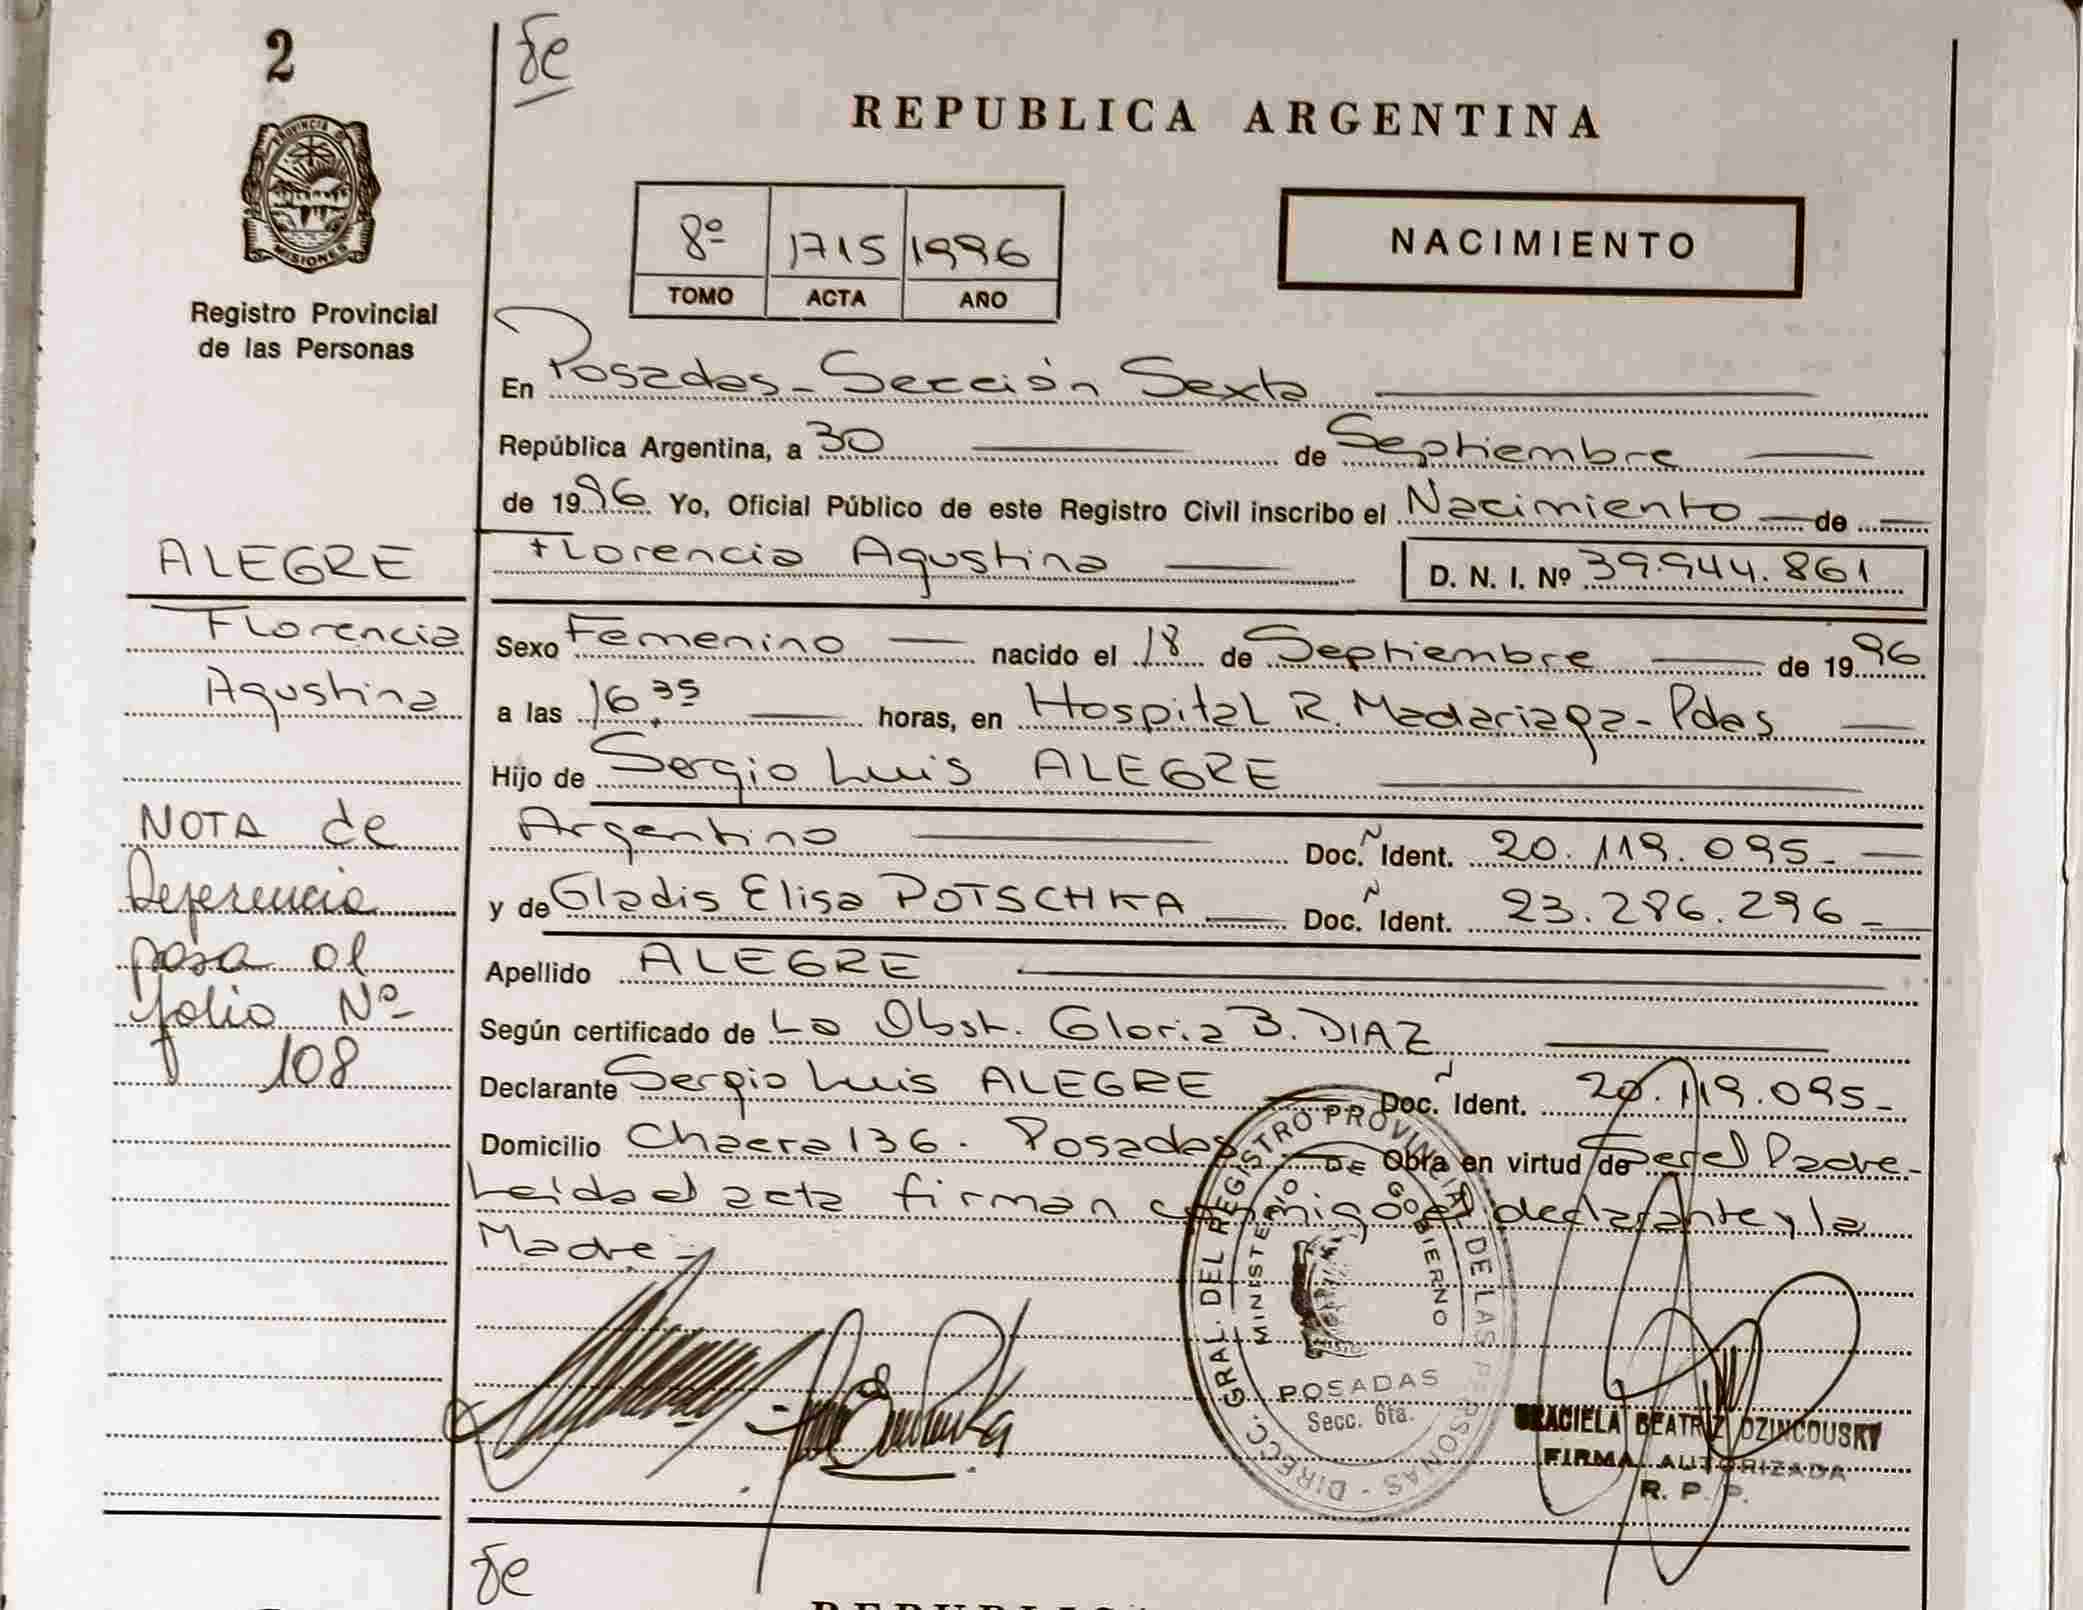 2
fe
PROVINCIA D
MISIONES
Registro Provincial
de las Personas
REPUBLICA ARGENTINA
8º 1715 1996
TOMO ACTA AÑO
NACIMIENTO
En Posadas - Sección Sexta
República Argentina, a 30 de Septiembre
de 1996 Yo, Oficial Público de este Registro Civil inscribo el Nacimiento de
Florencia Agustina D. N. I. Nº 39.944.861
Sexo Femenino nacido el 18 de Septiembre de 1996
a las 16 35 horas, en Hospital R. Madariaga - Pdas
Hijo de Sergio Luis ALEGRE
Argentino Doc. Ñ Ident. 20.119.095-
y de Gladis Elisa POTSCHKA Doc. Ñ Ident. 23.286.296-
Apellido ALEGRE
Según certificado de La Obst. Gloria B. DIAZ
Declarante Sergio Luis ALEGRE Doc. Ñ Ident. 20.119.095-
Domicilio Chacra 136. Posadas Obra en virtud de Ser el Padre-
Leida el acta firman conmigo el declarante y la
Madre-
ALEGRE
Florencia
Agustina
NOTA de
Referencia
pasa al
folio Nº
108
DIRECC. GRAL. DEL REGISTRO PROVINCIAL DE LAS PERSONAS -
MINISTERIO DE GOBIERNO
POSADAS
Secc. 6ta.
GRACIELA BEATRIZ DZINCOUSKY
FIRMA AUTORIZADA
R. P. P.
fe